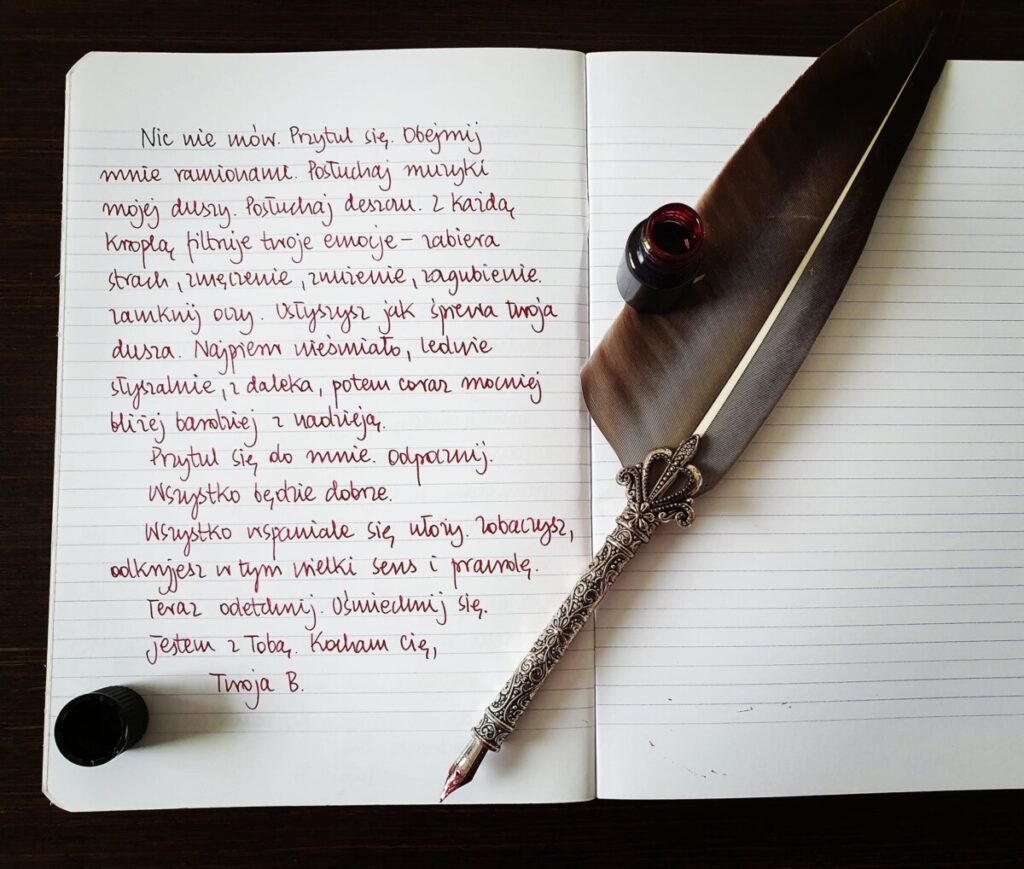 Nic nie mów. Przytul się. Obejmij
mnie ramionami. Posłuchaj muzyki
mojej duszy. Posłuchaj deszczu. Z każdą
kroplą filtruje twoje emocje – zabiera
strach, zmęczenie, znużenie, zagubienie.
Zamknij oczy. Usłyszysz jak śpiewa twoja
dusza. Najpierw nieśmiało, ledwie
słyszalnie, z daleka, potem coraz mocniej
bliżej bardziej z nadzieją.
Przytul się do mnie. Odpocznij.
Wszystko będzie dobrze.
Wszystko wspaniale się ułoży. Zobaczysz,
odkryjesz w tym wielki sens i prawdę.
Teraz odetchnij. Uśmiechnij się.
Jestem z Tobą. Kocham Cię,
Twoja B.